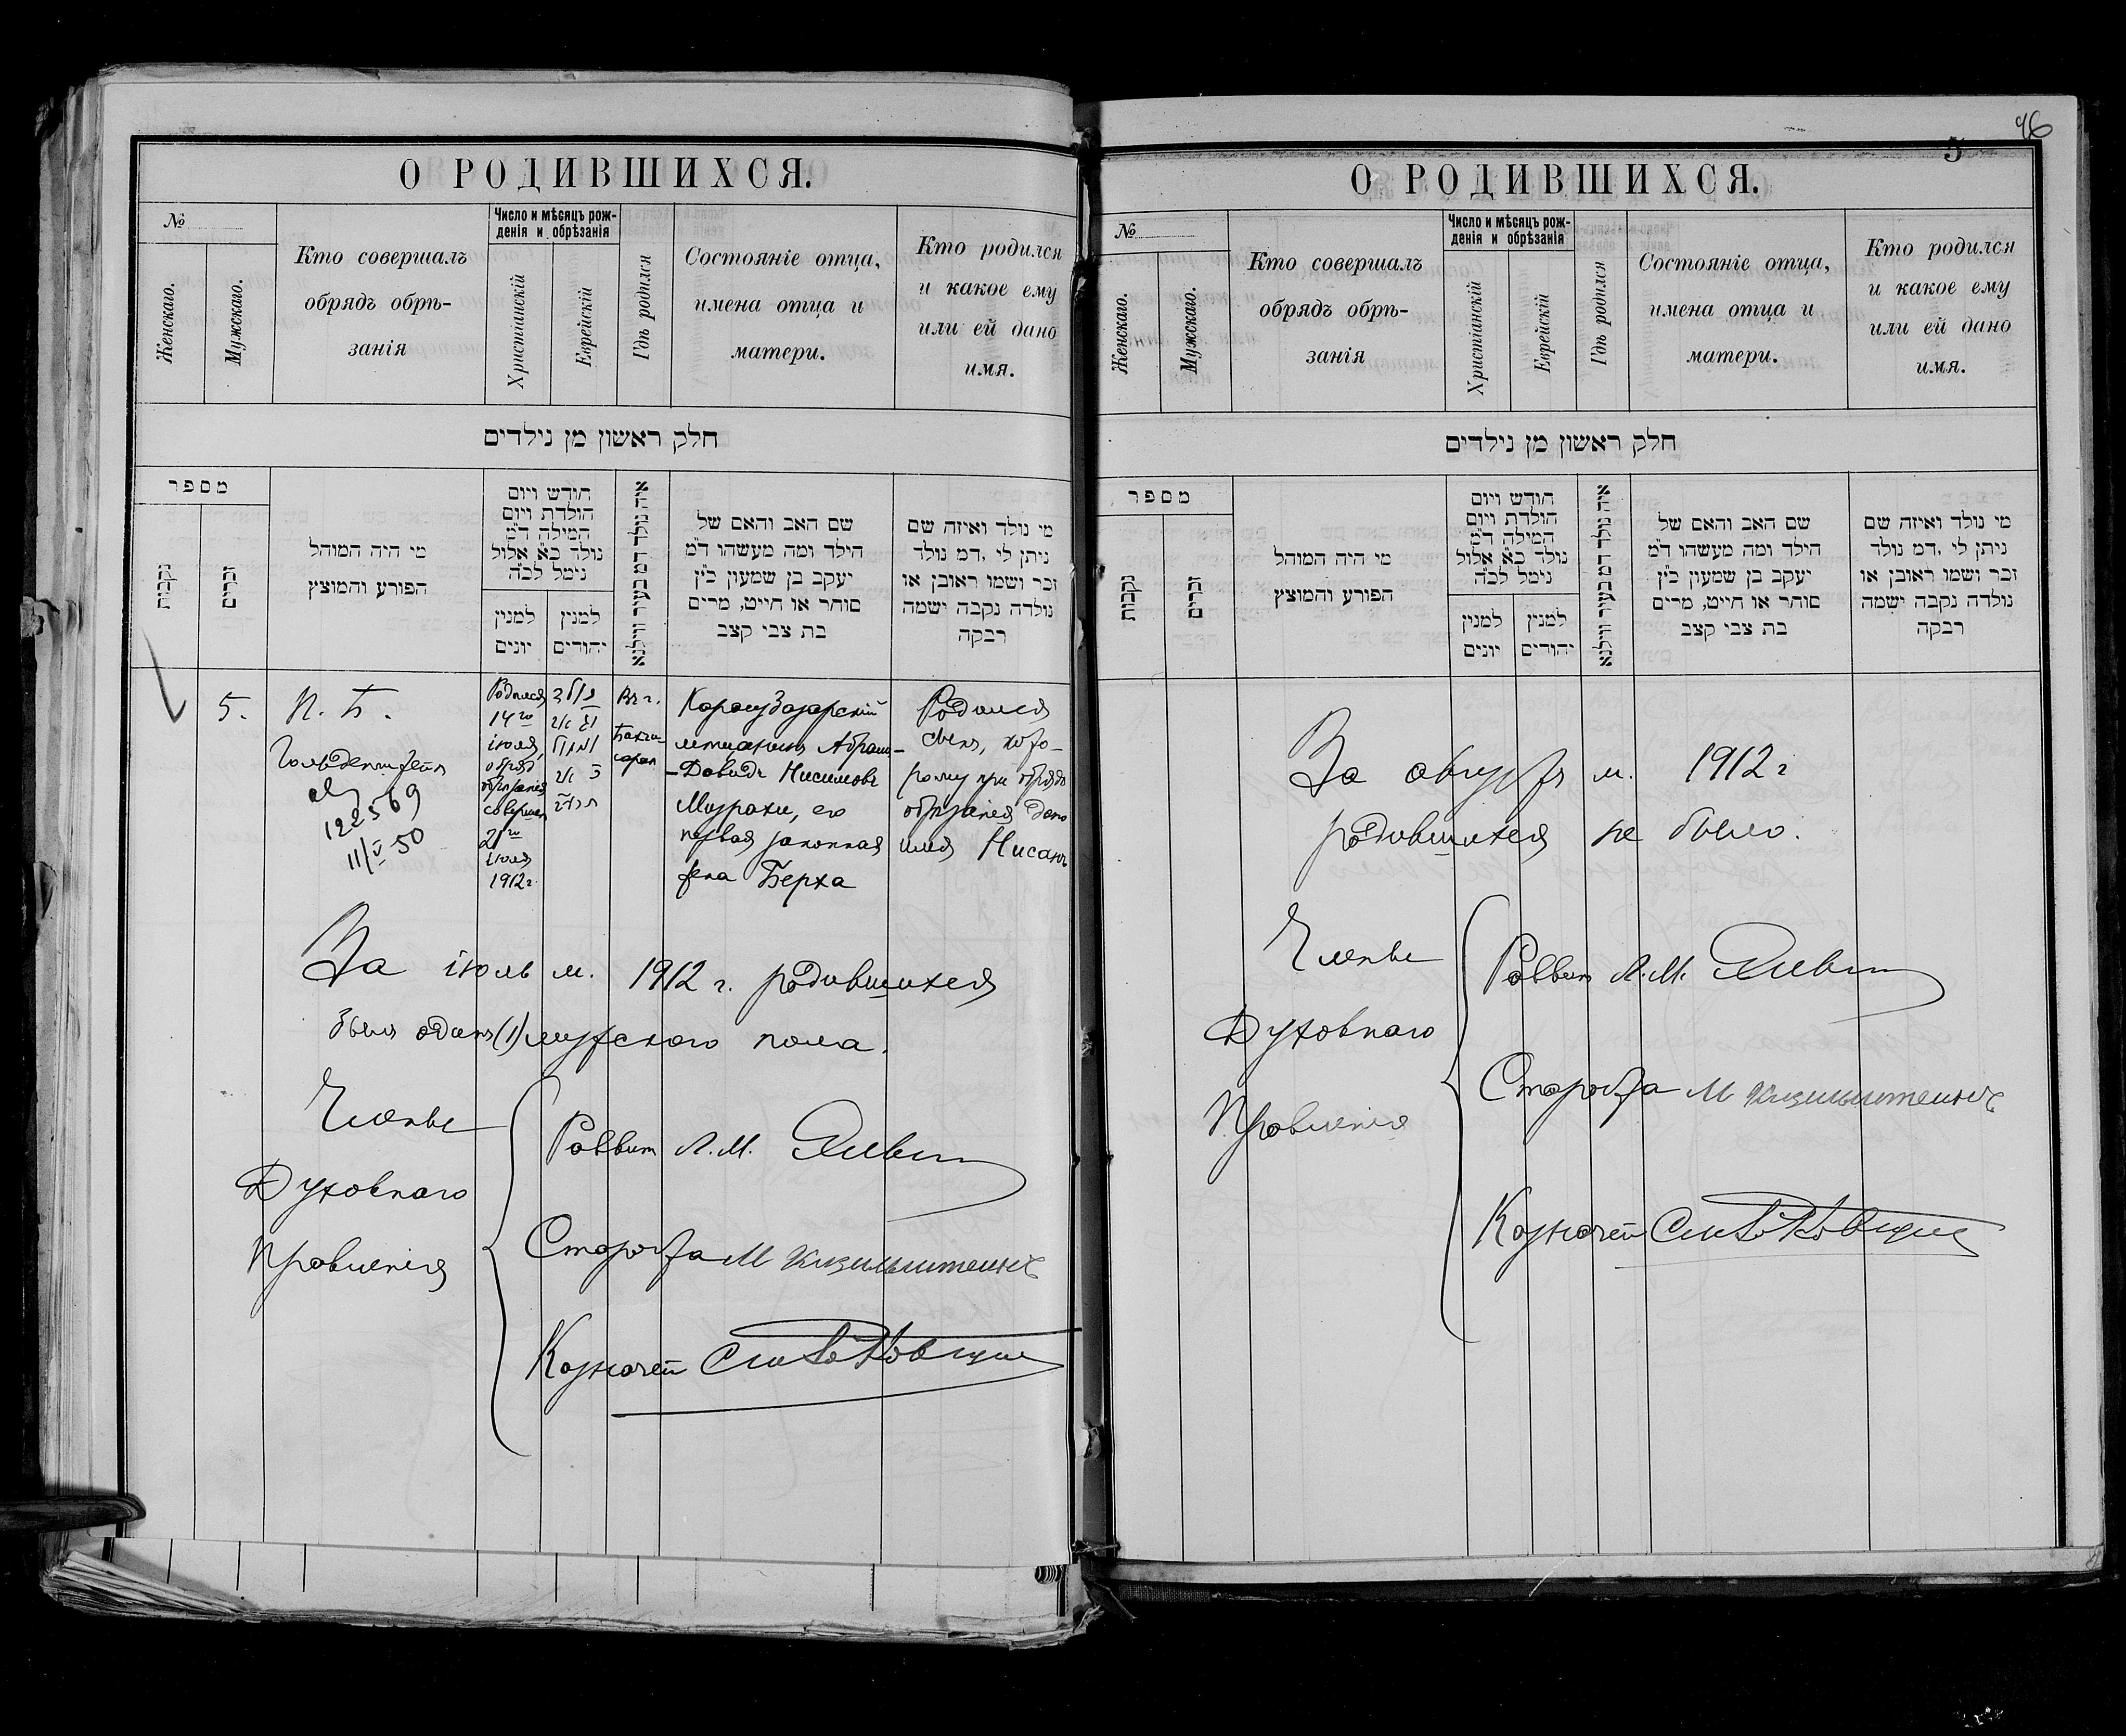 О РОДИВШИХСЯ.
№
Женскаго.
Мужскаго.
Кто совершалъ
обрядъ обрѣ-
занія
Число и мѣсяцъ рож-
денія и обрѣзанія
Христіанскій
Еврейскій
Гдѣ родился
Состояніе отца,
имена отца и
матери.
Кто родился
и какое ему
или ей дано
имя.
חלק ראשון מן נילדים
מספר
נקבות
זכרים
מי היה המוהל
הפורע והמוצץ
חודש ויום
הולדת ויום
המילה ד"מ
נולד כ"א אלול
נימל לכ"ה
למנין
יונים
למנין
יהודים
איה נולד דמ בעיר ווילנא
שם האב והאם של
הילד ומה מעשהו ד"מ
יעקב בן שמעון כ"ץ
סוחר או חייט, מרים
בת צבי קצב
מי נולד ואיזה שם
ניתן לי ,דמ נולד
זכר ושמו ראובן או
נולדה נקבה ישמה
רבקה
5.
П. Б.
Гольденштейн
122569
11/V 50
Родился
14го
іюля,
обряд
обрѣзанія
соверше
21го
іюля
1912г.
Въ г.
Бахчи-
сараѣ
Карасубазарскій
мѣщанинъ Абрам-
-Давидъ Нисимовъ
Мизрахи, его
первая законная
жена Берха
Родился
сынъ, кото-
рому при обрядѣ
обрѣзанія дано
имя Нисанъ
За іюль м. 1912 г. родившихся
былъ одинъ (1) мужского пола.
Члены
Духовнаго
Правленія
Раввин Л. М.
Староста М Кизильштейнъ
Казначей
96
5
О РОДИВШИХСЯ.
№
Женскаго.
Мужскаго.
Кто совершалъ
обрядъ обрѣ-
занія
Число и мѣсяцъ рож-
денія и обрѣзанія
Христіанскій
Еврейскій
Гдѣ родился
Состояніе отца,
имена отца и
матери.
Кто родился
и какое ему
или ей дано
имя.
חלק ראשון מן נילדים
מספר
נקבות
זכרים
מי היה המוהל
הפורע והמוצץ
חודש ויום
הולדת ויום
המילה ד"מ
נולד כ"א אלול
נימל לכ"ה
למנין
יונים
למנין
יהודים
איה נולד דמ בעיר ווילנא
שם האב והאם של
הילד ומה מעשהו ד"מ
יעקב בן שמעון כ"ץ
סוחר או חייט, מרים
בת צבי קצב
מי נולד ואיזה שם
ניתן לי ,דמ נולד
זכר ושמו ראובן או
נולדה נקבה ישמה
רבקה
За август м. 1912 г
родившихся не было.
Члены
Духовнаго
Правленія
Раввин Л. М.
Староста М Кизильштейнъ
Казначей